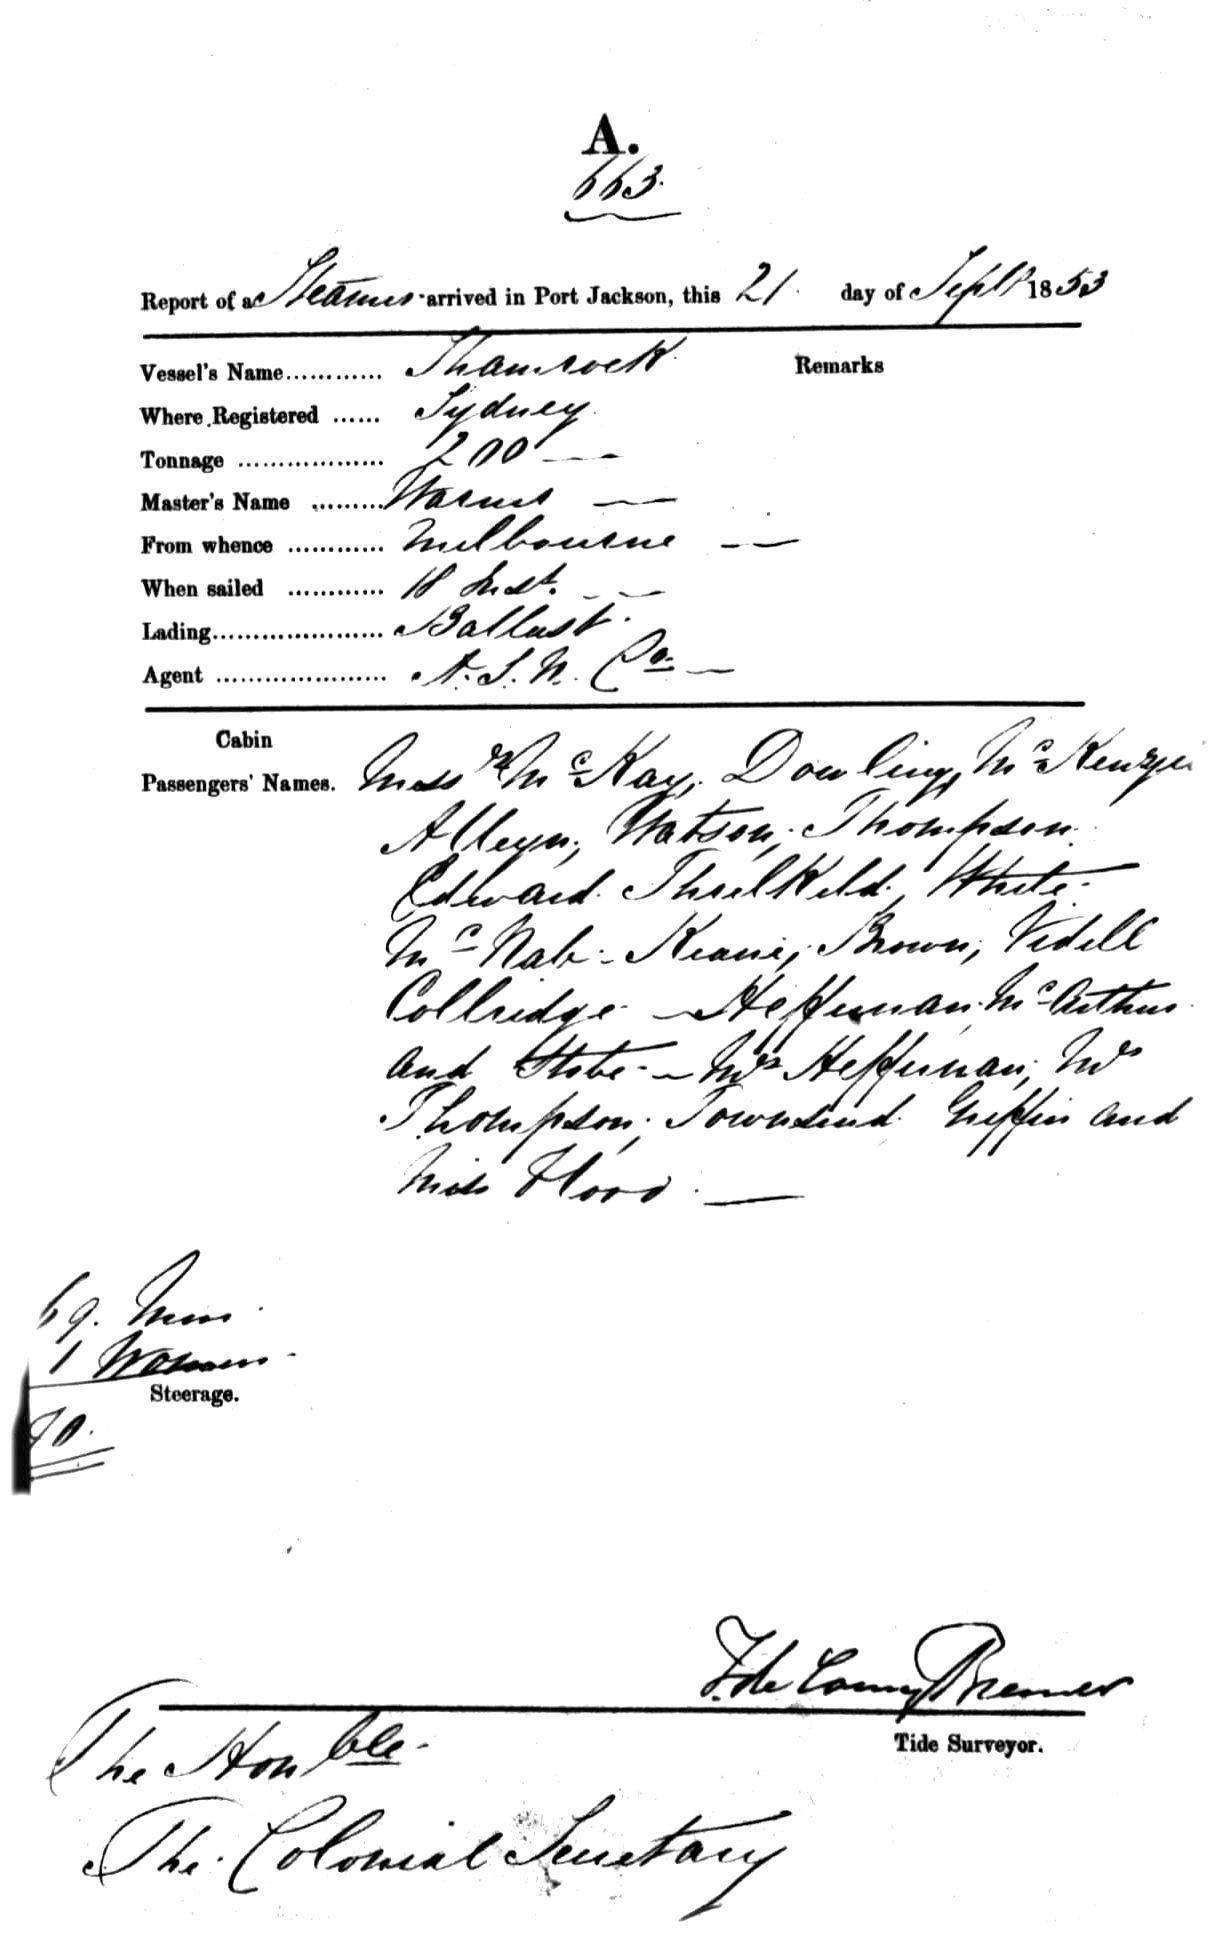 A.
663.
Report of a Steamer arrived in Port Jackson, this 21 day of Sept 1853
Vessel's Name............ Shamrock Remarks
Where Registered ...... Sydney
Tonnage .................. 200
Master's Name ......... Warner
From whence ............ Melbourne
When sailed ............ 18 Inst.
Lading..................... Ballast.
Agent ..................... A. S. N. Co.
Cabin
Passengers' Names. Messrs McKay, Dowling, McKenzie
Alleyn, Watson, Thompson
Edward Threlkeld, White
McNab - Keane, Brown, Videll
Collridge - Heffernan McArthur
and - Mrs Heffernan, Mrs
Thompson, Townsend Griffin and
Miss Flood
69. Men
1 Woman
Steerage.
70.
Bremer
Tide Surveyor.
The Honble
The Colonial Secretary